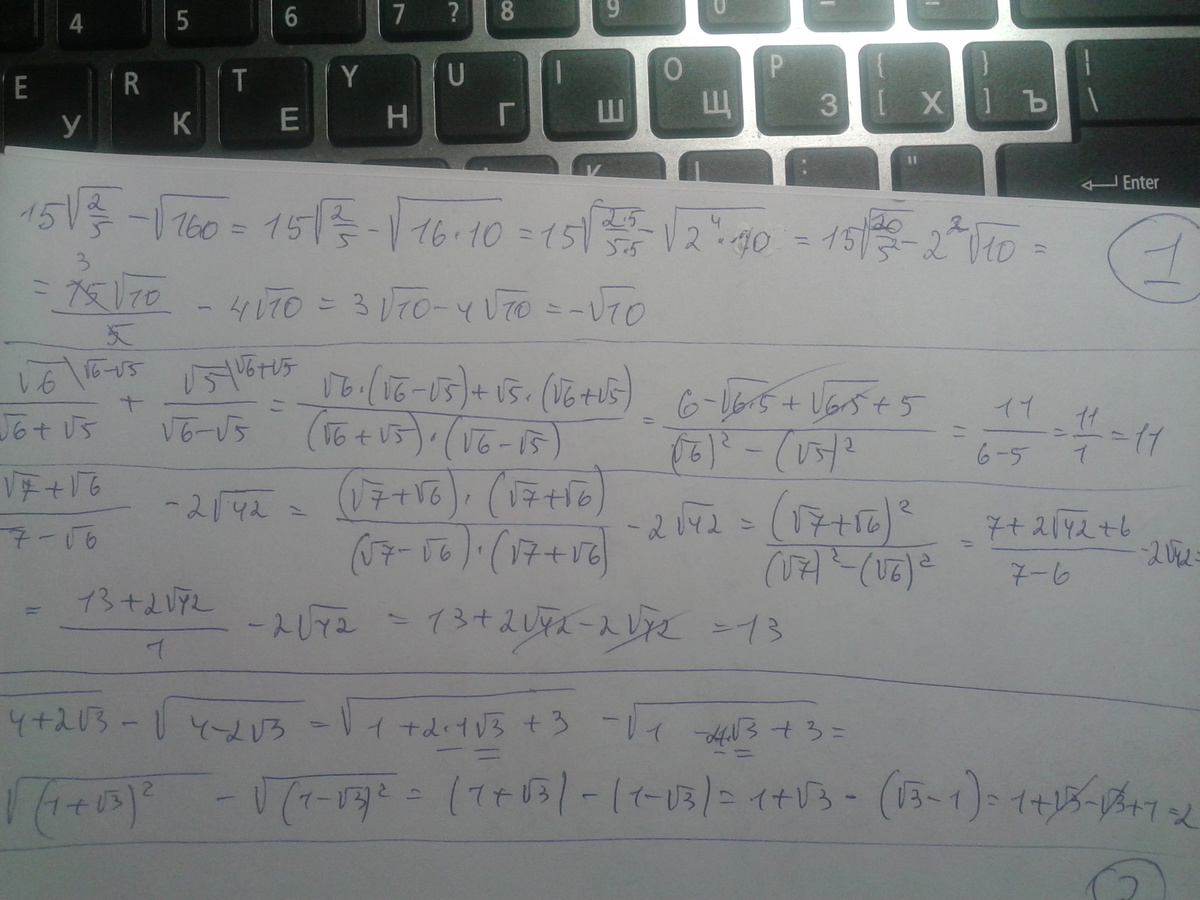 4 5 6 7 ? 8 9 0
E У R К T Е Y Н U Г I Ш O Щ P З { [ Х } ] Ъ | \
K L : " Enter
15√(2/5) - √160 = 15√(2/5) - √(16·10) = 15√(2·5/5·5) - √(2⁴·10) = 15√(10/5²) - 2²√10 =
= 15√10/5 - 4√10 = 3√10 - 4√10 = -√10
1
√6\√6-√5/(√6+√5) + √5\√6+√5/(√6-√5) = (√6·(√6-√5)+√5·(√6+√5))/((√6+√5)·(√6-√5)) = (6-√(6·5)+√(6·5)+5)/((√6)²-(√5)²) = 11/(6-5) = 11/1 = 11
(√7+√6)/(7-√6) - 2√42 = ((√7+√6)·(√7+√6))/((√7-√6)·(√7+√6)) - 2√42 = (√7+√6)²/((√7)²-(√6)²) = (7+2√42+6)/(7-6) - 2√42 =
= (13+2√42)/1 - 2√42 = 13+2√42-2√42 = 13
√(4+2√3) - √(4-2√3) = √(1+2·1√3+3) - √(1-2·1√3+3) =
√((1+√3)²) - √((1-√3)²) = |1+√3| - |1-√3| = 1+√3 - (√3-1) = 1+√3-√3+1=2
2